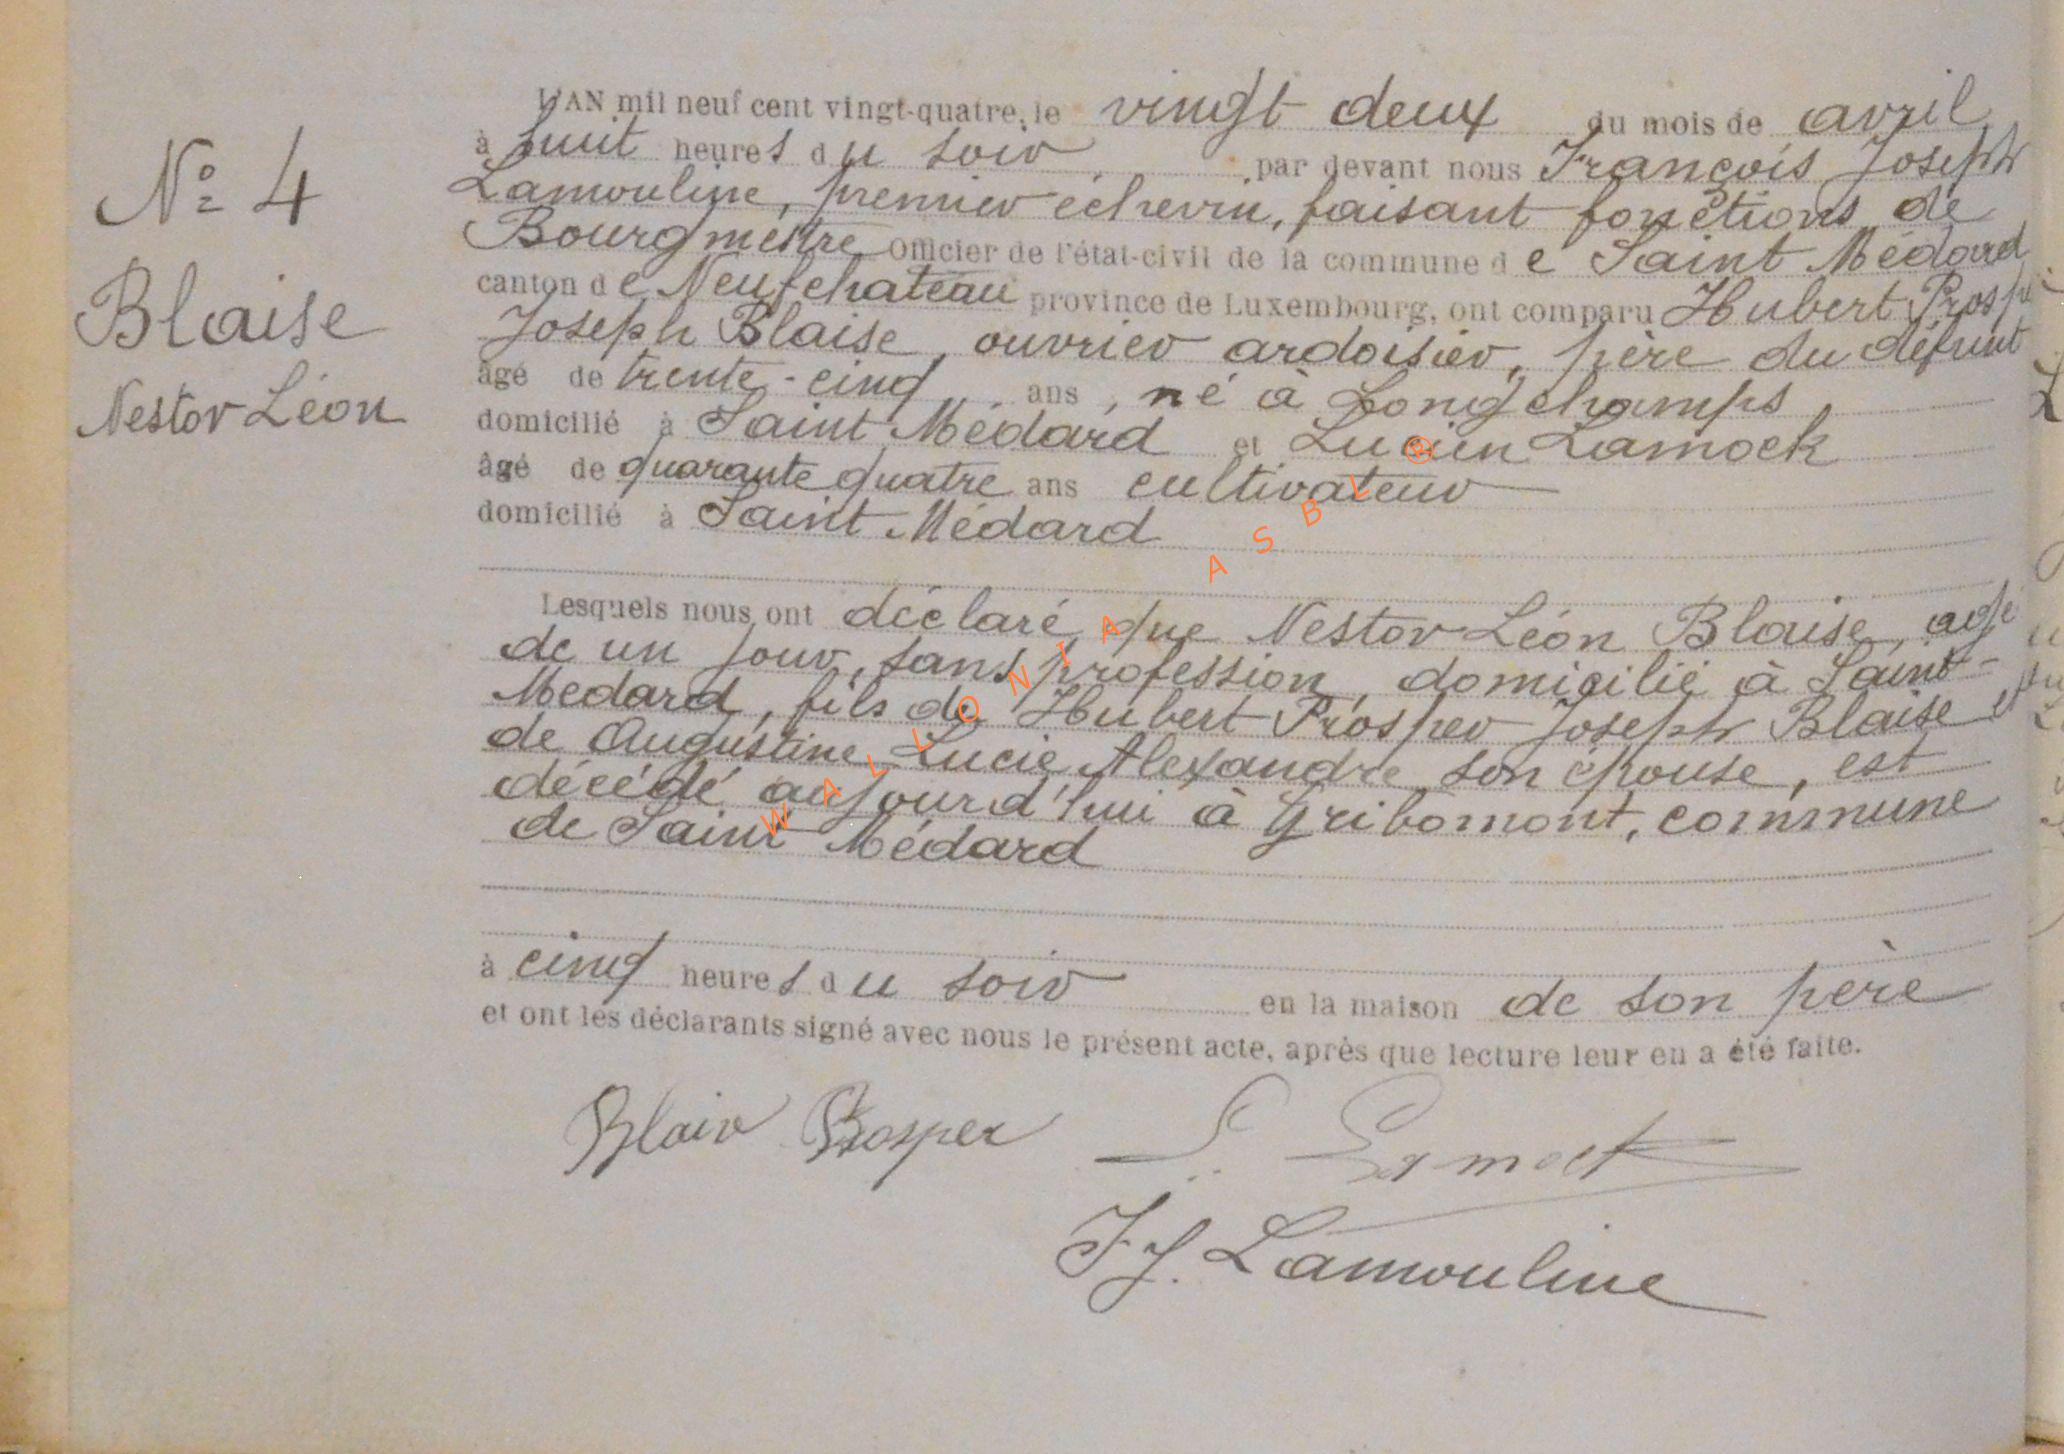 N° 4
Blaise
Nestor Léon
L'AN mil neuf cent vingt-quatre, le vingt deux du mois de avril
à huit heures du soir par devant nous François Joseph
Lamouline, premier échevin, faisant fonctions de
Bourgmestre Officier de l'état-civil de la commune de Saint Médard
canton de Neufchateau province de Luxembourg, ont comparu Hubert Prosper
Joseph Blaise, ouvrier ardoisier, père du défunt
âgé de trente-cinq ans, né à Longchamps
domicilié à Saint Médard et Lucien Lamock
âgé de quarante quatre ans cultivateur
domicilié à Saint Médard
Lesquels nous ont déclaré que Nestor Léon Blaise, agé
de un jour, sans profession, domicilié à Saint-
Médard, fils de Hubert Prosper Joseph Blaise et
de Augustine Lucie Alexandre son épouse, est
décédé aujourd'hui à Gribomont, commune
de Saint Médard
à cinq heures du soir en la maison de son père
et ont les déclarants signé avec nous le présent acte, après que lecture leur en a été faite.
Blaise Prosper L. Lamock
F J. Lamouline
WALLONIA ASBL ®